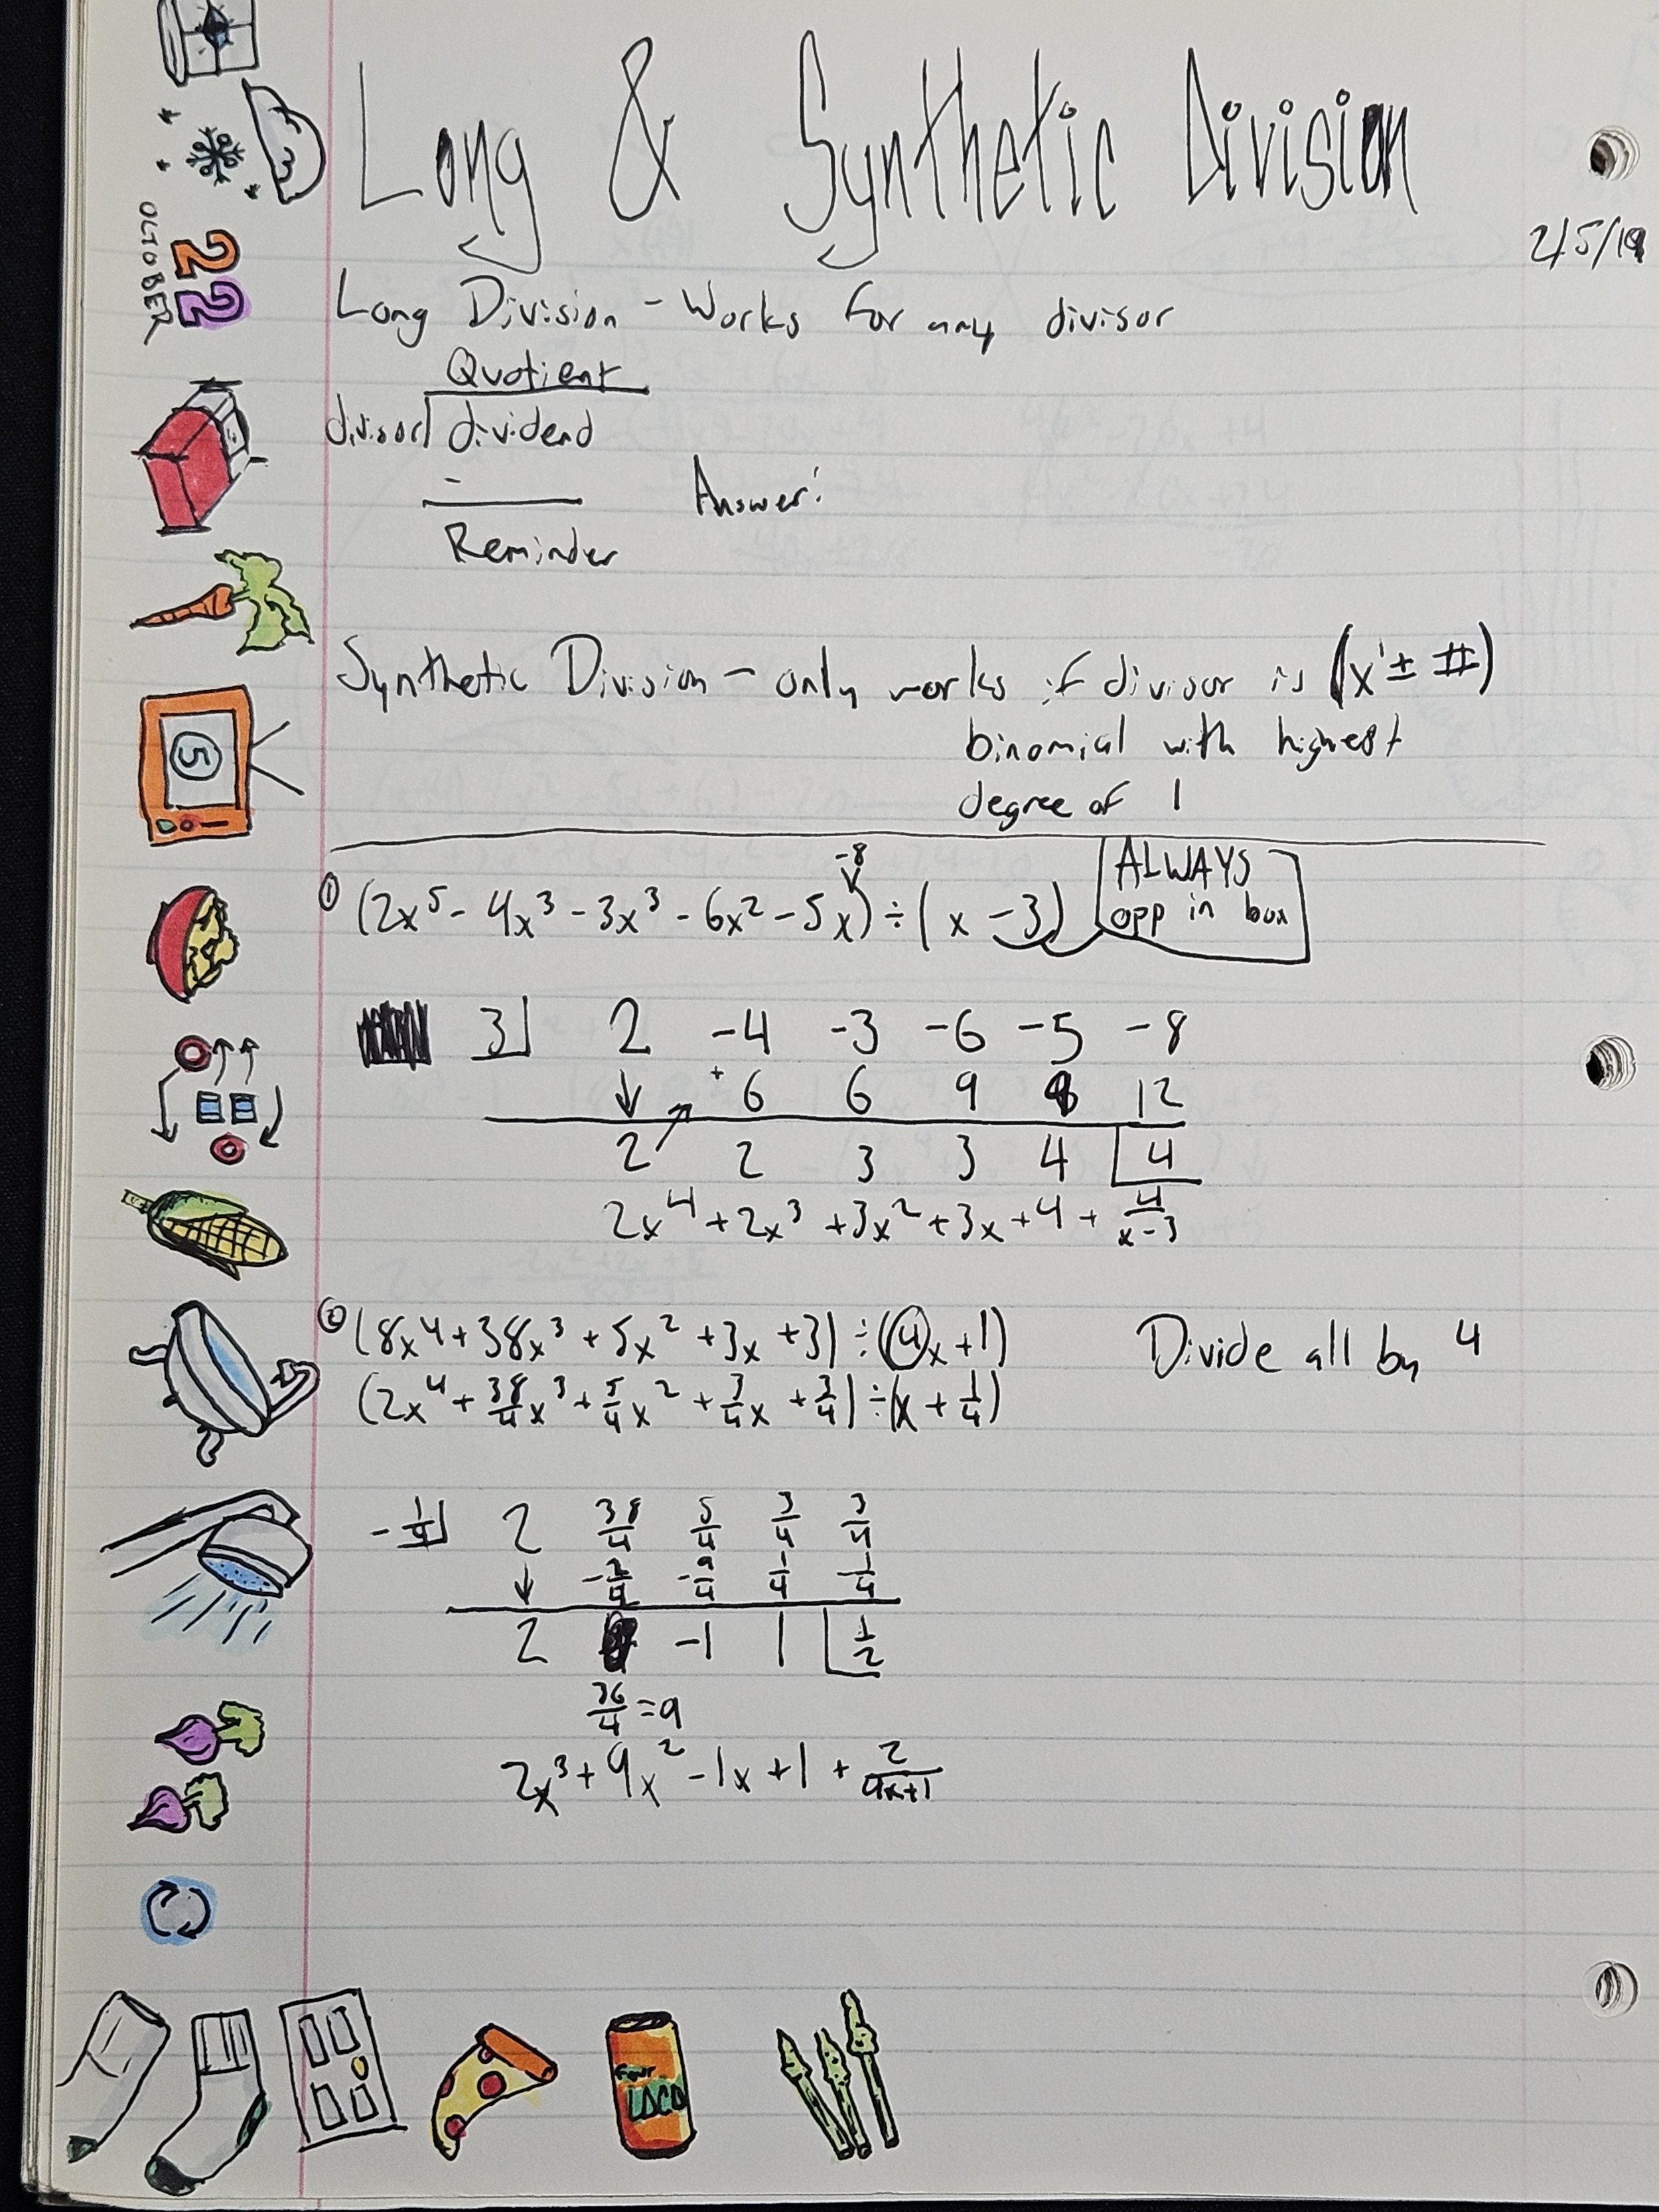 Long & Synthetic Division
2/5/19
OCTOBER
22
Long Division - Works for any divisor
Quotient
divisor dividend
-
Answer:
Reminder
Synthetic Division - only works if divisor is (x¹ ± #)
binomial with highest
degree of 1
5
-8
① (2x⁵ - 4x³ - 3x³ - 6x² - 5x) ÷ (x - 3)
ALWAYS
opp in box
3 2 -4 -3 -6 -5 -8
↓ + 6 6 9 9 12
2 2 3 3 4 4
2x⁴ + 2x³ + 3x² + 3x + 4 + 4/(x-3)
② (8x⁴ + 38x³ + 5x² + 3x + 3) ÷ (4x + 1) Divide all by 4
(2x⁴ + 38/4 x³ + 5/4 x² + 3/4 x + 3/4) ÷ (x + 1/4)
-1/4 2 38/4 5/4 3/4 3/4
↓ -2/4 -9/4 1/4 -1/4
2 -1 1 1/2
36/4 = 9
2x³ + 9x² - 1x + 1 + 2/(4x+1)
Four
LOCO